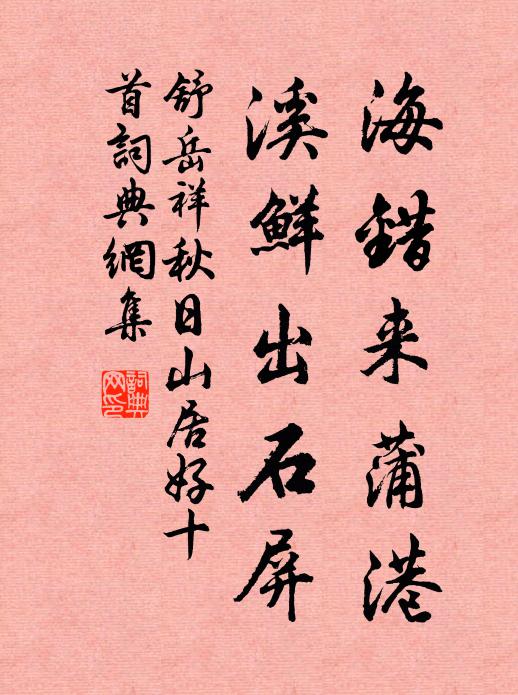 海錯来蒲港
溪鮮出石屏
舒岳祥秋日山居好十
首詞典網集
詞典网印